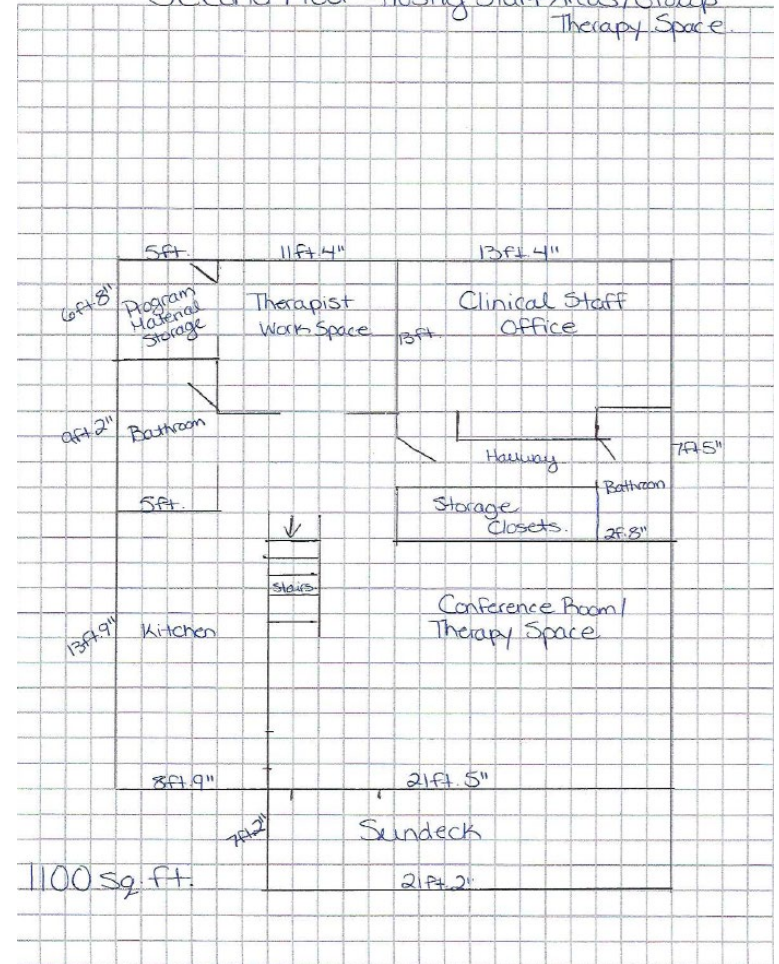 Therapy Space.
5ft.
11ft.4"
13ft.4"
6ft.8"
Program
Material
Storage
Therapist
Work Space
13ft.
Clinical Staff
Office
9ft.2"
Bathroom
Hallway
7ft5"
5ft.
Storage
Closets.
Bathroom
2f.8"
Stairs
13ft.9"
Kitchen
Conference Room/
Therapy Space
8ft.9"
21ft.5"
7ft2"
Sundeck
1100 sq.ft.
21ft.2"